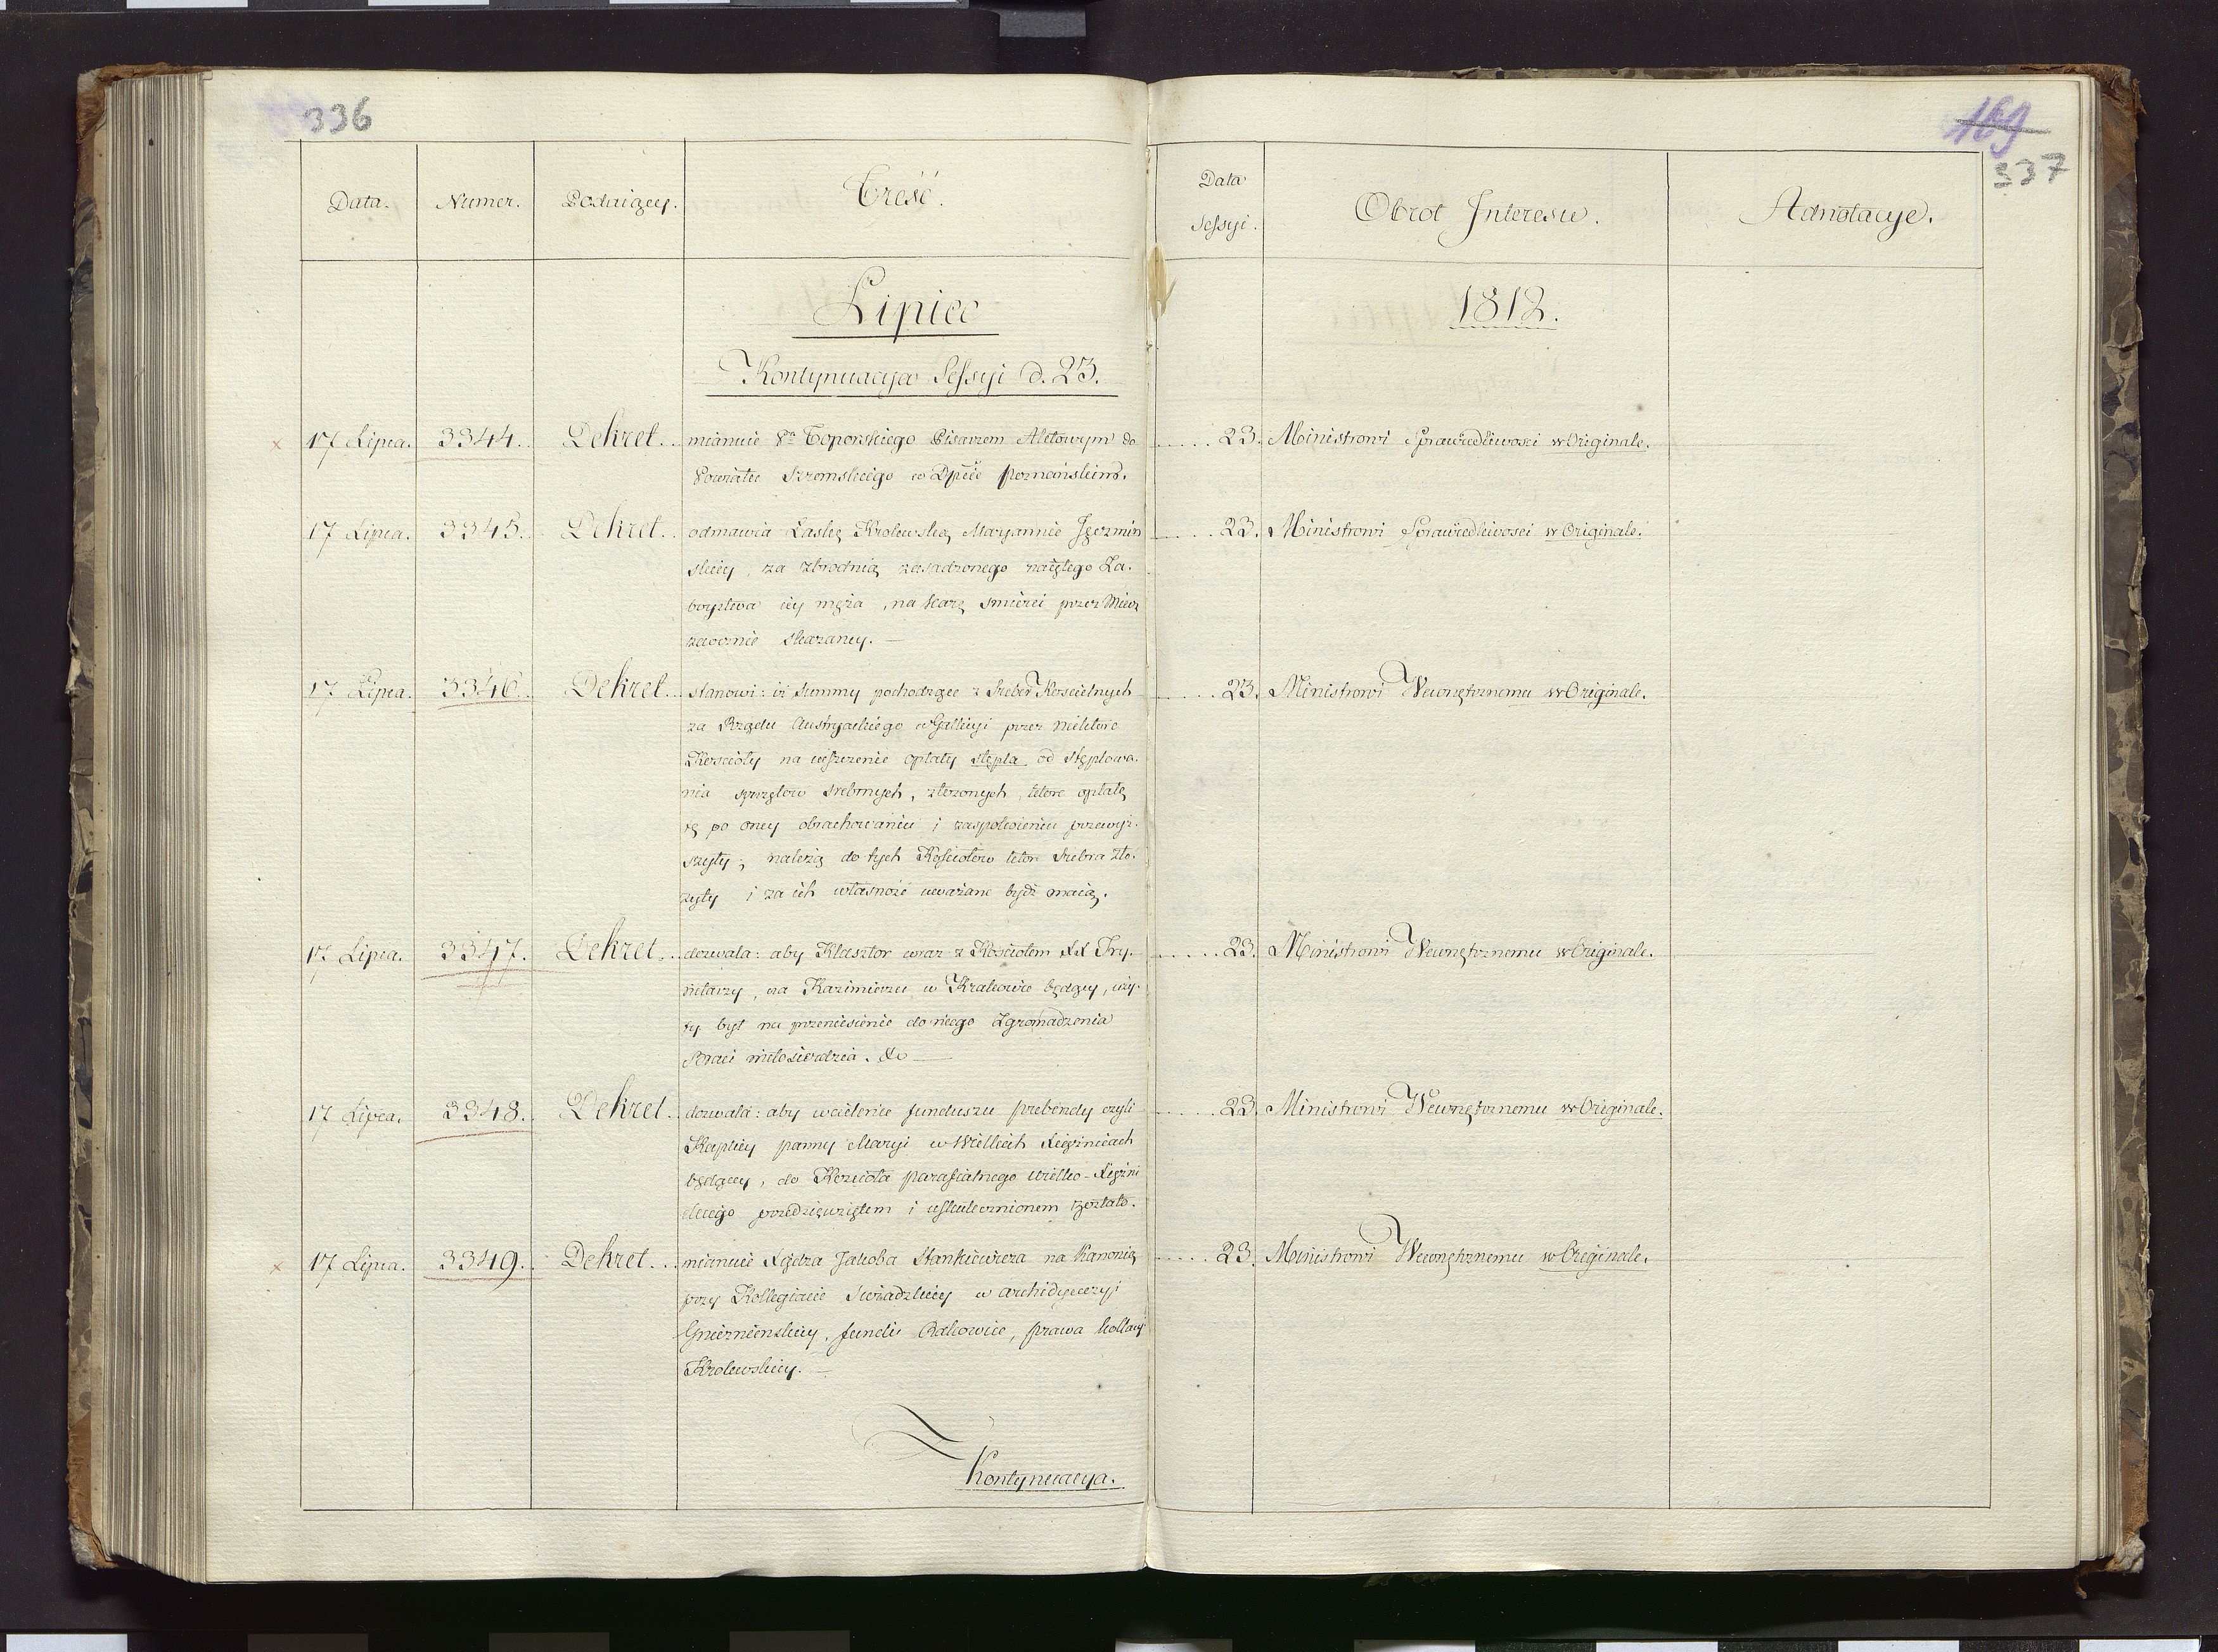 336
169
337
Data. Numer. Podaiący. Treść. Data Sessyi. Obrot Interesu. Adnotacye.
Lipiec 1812.
Kontynuacya Sessyi d. 23.
17 Lipca. 3344. Dekret. mianuie Pa Toporskiego Pisarzem Aktowym do 23. Ministrowi Sprawiedliwosci w Originale.
Powiatu Szremskiego w Dpcie Poznańskim.
17 Lipca. 3345. Dekret. odmawia Łaskę Krolewską Maryannie Jęczmin 23. Ministrowi Sprawiedliwosci w Originale.
skiey, za zbrodnią zasadzonego nagłego Za-
boystwa iey męża, na karę smierci przez
zaocznie skazaney. —
17 Lipca. 3346. Dekret. stanowi: iż Summy pochodzące z Sreber Koscielnych 23. Ministrowi Wewnętrznemu w Originale.
za Rządu Austryackiego w Gallicyi przez niektore
Koscioły na uiszczenie opłaty stępla od stęplowa-
nia sprzętow srebrnych, złożonych, ktore opłatę
tę po oney obrachowaniu i zaspokoieniu przewyż-
szyły; należą do tych Kościołow ktore Srebra zło-
żyły i za ich własność uważane bydź maią.
17 Lipca. 3347. Dekret. dozwala: aby Klasztor wraz z Kościołem XX Try- 23. Ministrowi Wewnętrznemu w Originale.
nitarzy, na Kazimierzu w Krakowie będący, uży-
ty był na przeniesienie do niego Zgromadzenia
Braci miłosierdzia. &c —
17 Lipca. 3348. Dekret. dozwala: aby wcielenie funduszu prebendy czyli 23. Ministrowi Wewnętrznemu w Originale.
Kaplicy panny Maryi w Wielkich Xiężnicach
będącey, do Kościoła parafialnego Wielko-Xiężni
ckiego przedsięwziętem i uskutecznionem zostało.
17 Lipca. 3349. Dekret. mianuie Xiędza Jakoba Stankiewicza na Kanonię 23. Ministrowi Wewnętrznemu w Originale.
przy Kollegiacie Sieradzkiey w archidyecezyi
Gnieznienskiey, fundi Rakowice, prawa kollacyi
Krolewskiey. —
Kontynuacya.